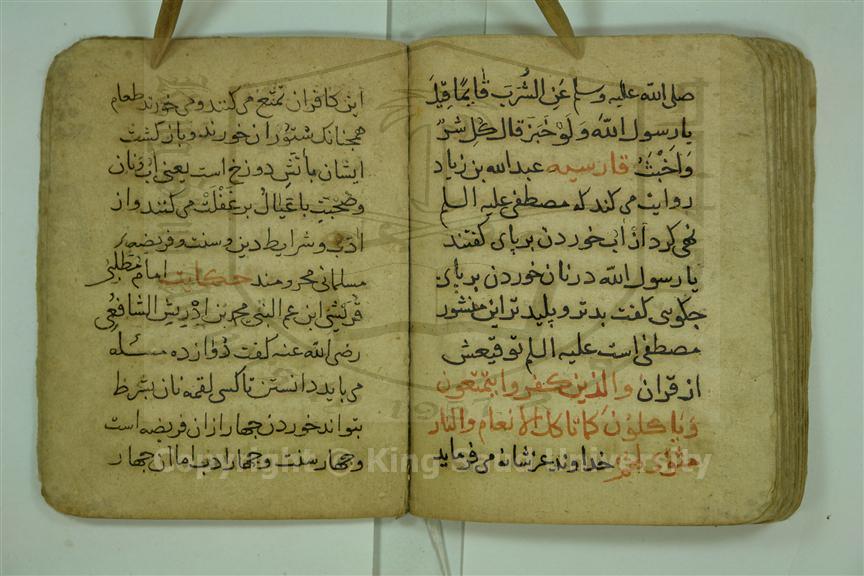 صلی الله علیه وسلم عَنِ الشُّرْبِ قَایِمًا قِیلَ
یا رسول الله وَلَوْ خُبْزٌ قال کُلّ شرّ
وَاَخْبَثُ فارسیه عبدالله بن زیاد
روایت می کند که مصطفی علیه السلم
نهی کرد از آب خوردن بر پای کفتند
یا رسول الله در نان خوردن بر پای
جکویی کفت بدتر و پلیدتر این منشور
مصطفی است علیه السلم توقیعش
از قران والذین کفروا یتمتعون
ویاکلون کما تاکل الانعام والنار
مثوی لهم خداوند عز شانه می فرماید
این کافران تمتّع می کنند و می خورند طعام
همجنانک شتوران خورند و باز کشت
ایشان بآتش دوزخ است یعنی آب و نان
و صحبت با عیال بر غفلت می کنند و از
ادب و شرایط دین و سنت و فریضهٔ
مسلمانی محرومند حکایت امام مطلبی
قرشی ابن عم النبی محمد بن ادریس الشافعی
رضی الله عنه کفت دوازده مسئله
می باید دانستن تا کسی لقمه نان بشرط
بتواند خوردن جهار ازان فریضه است
و جهار سنت و جهار ادب اما آن جهار
Copyright © King Saud University